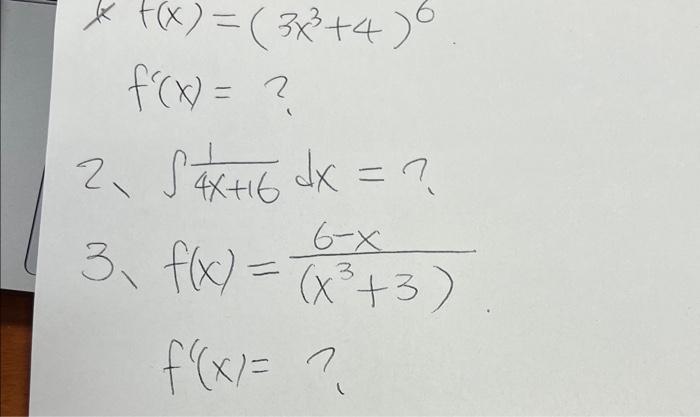 f(x) = (3x³+4)⁶.
f'(x) = ?
2、 ∫ 1/(4x+16) dx = ?
3、 f(x) = (6-x)/(x³+3).
f'(x) = ?